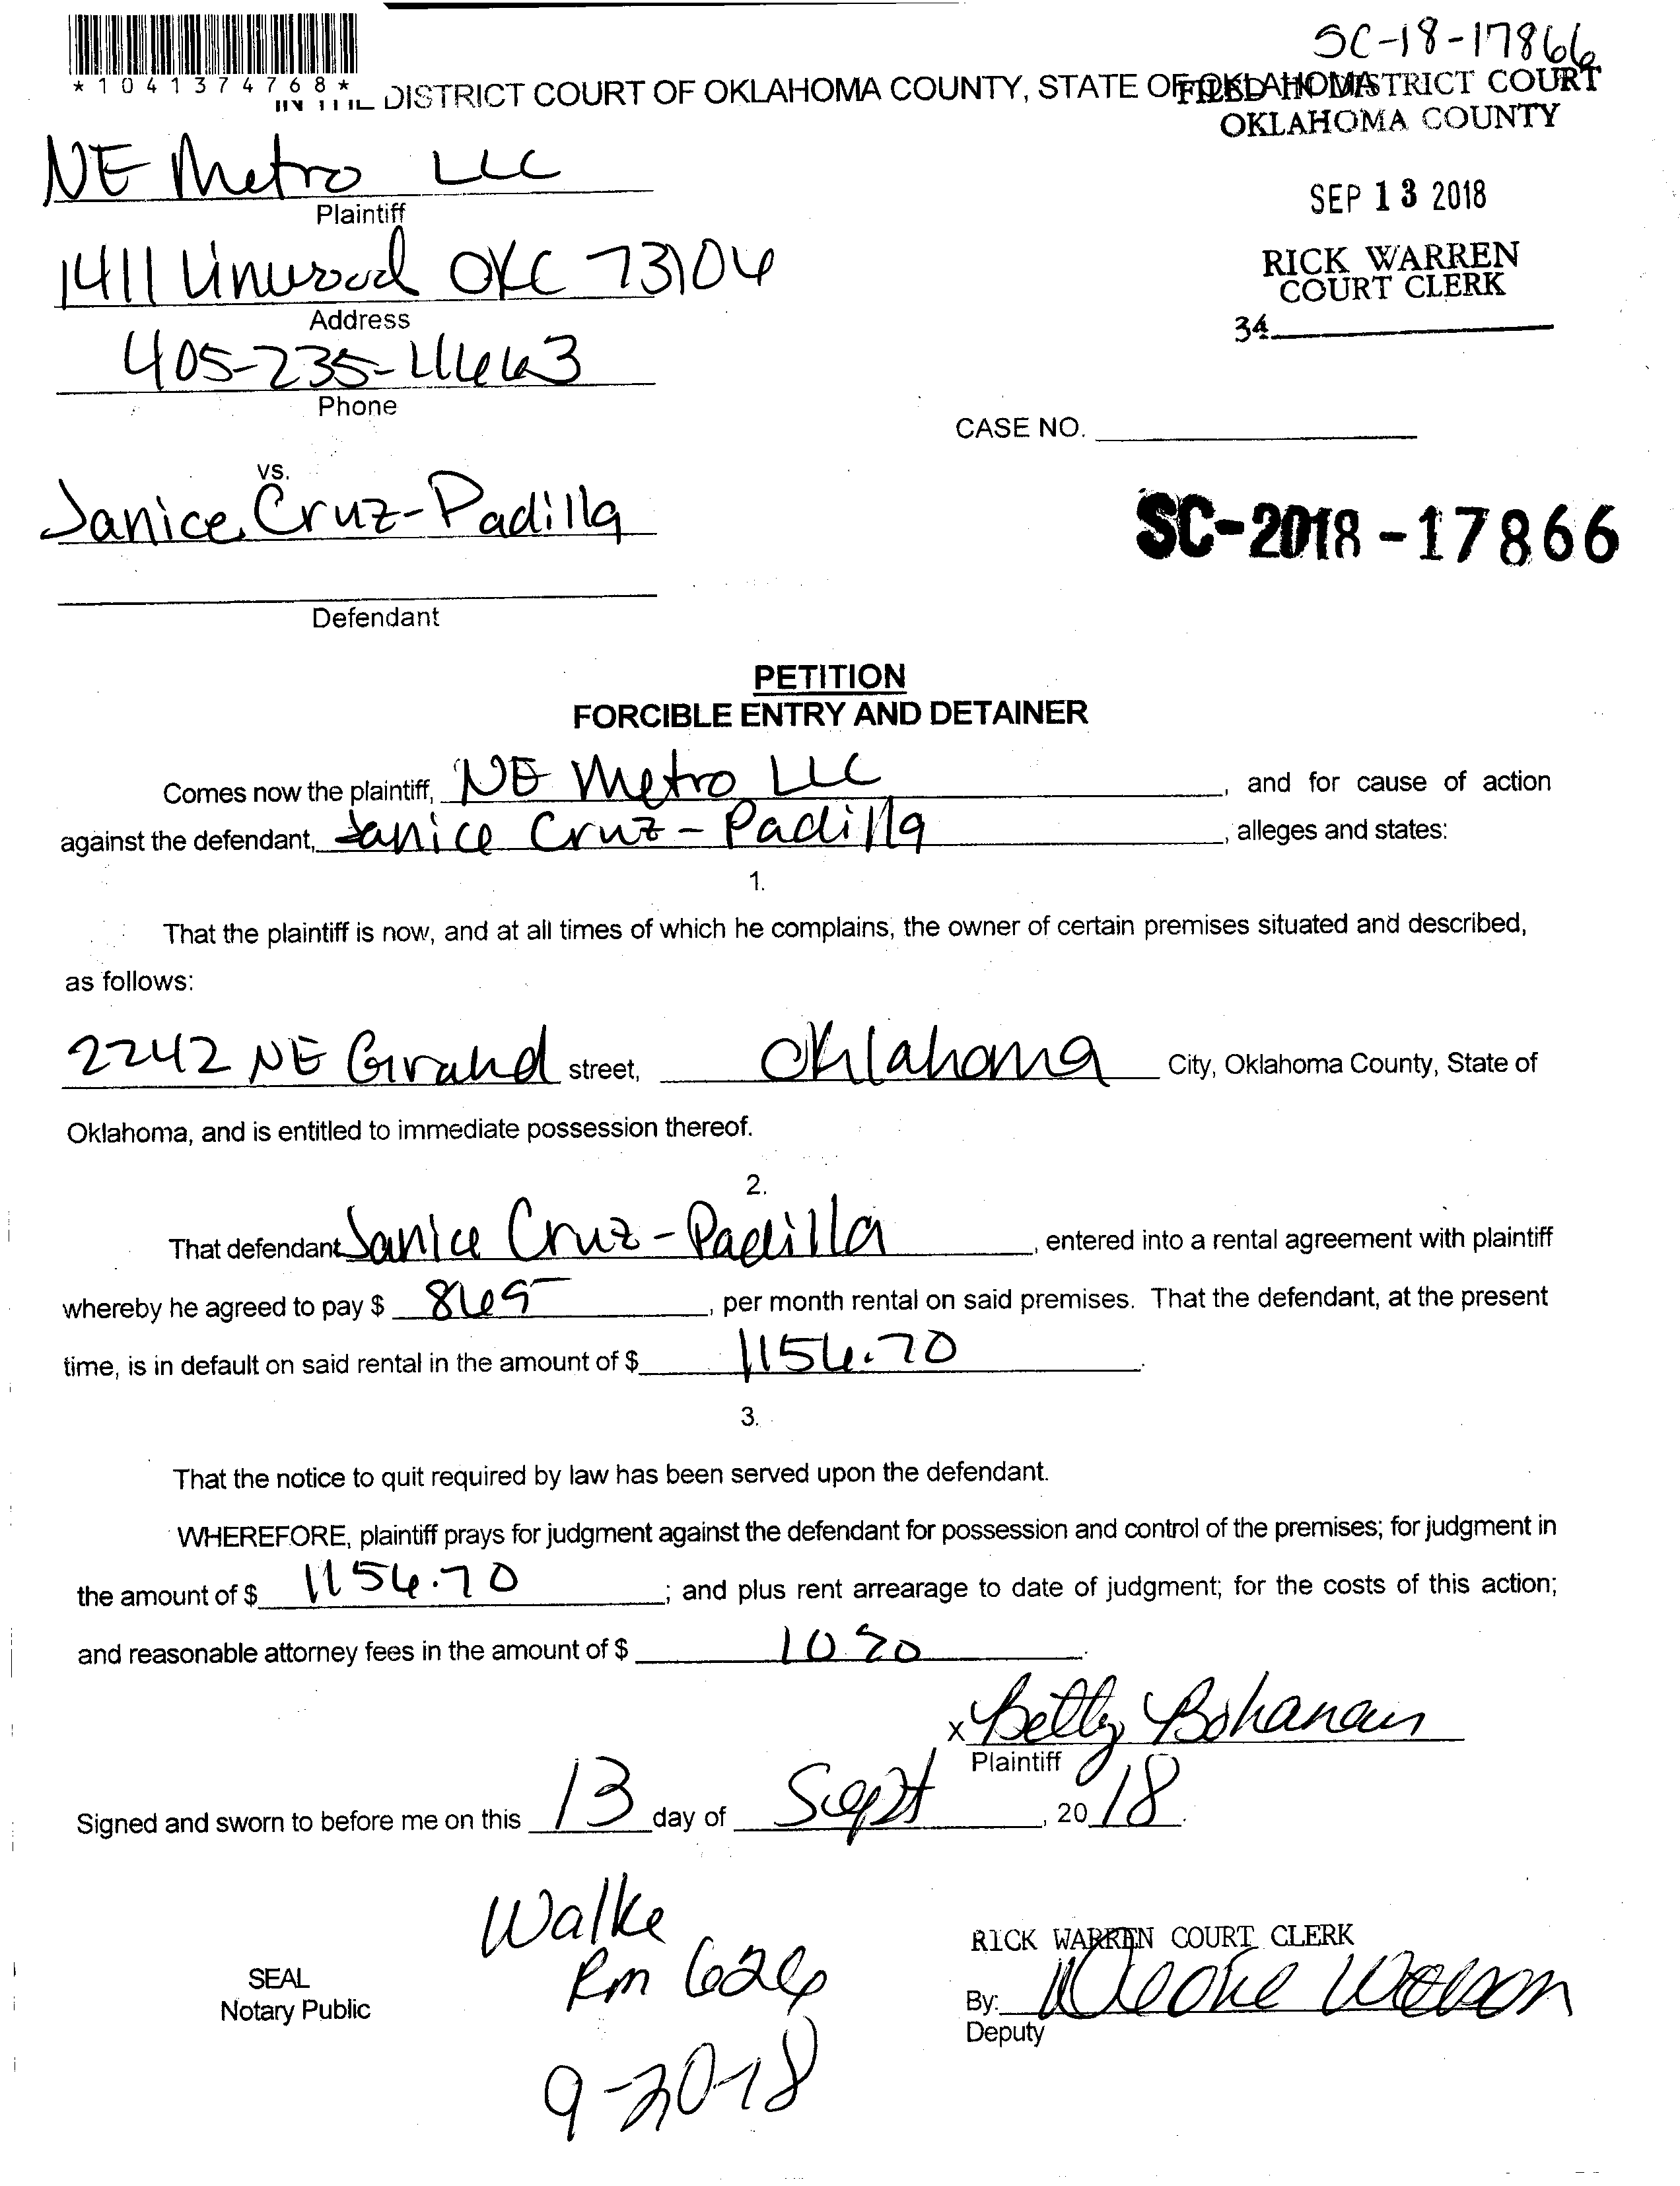 SC-18-17866
*1041374768*
IN THE DISTRICT COURT OF OKLAHOMA COUNTY, STATE OF OKLAHOMA
FILED IN DISTRICT COURT
OKLAHOMA COUNTY
NE Metro LLC
Plaintiff
SEP 13 2018
1411 Linwood OKC 73104
Address
RICK WARREN
COURT CLERK
34
405-235-4663
Phone
CASE NO.
vs.
Janice Cruz-Padilla
SC-2018-17866
Defendant
PETITION
FORCIBLE ENTRY AND DETAINER
Comes now the plaintiff, NE Metro LLC, and for cause of action
against the defendant, Janice Cruz-Padilla, alleges and states:
1.
That the plaintiff is now, and at all times of which he complains, the owner of certain premises situated and described,
as follows:
2242 NE Grand street, Oklahoma City, Oklahoma County, State of
Oklahoma, and is entitled to immediate possession thereof.
2.
That defendant Janice Cruz-Padilla, entered into a rental agreement with plaintiff
whereby he agreed to pay $ 869, per month rental on said premises. That the defendant, at the present
time, is in default on said rental in the amount of $ 1156.70.
3.
That the notice to quit required by law has been served upon the defendant.
WHEREFORE, plaintiff prays for judgment against the defendant for possession and control of the premises; for judgment in
the amount of $ 1156.70; and plus rent arrearage to date of judgment; for the costs of this action;
and reasonable attorney fees in the amount of $
x Betty Bohanan
Plaintiff
Signed and sworn to before me on this 13 day of Sept, 2018.
Walke
RICK WARREN COURT CLERK
Rm 626
SEAL
Notary Public
By:
Deputy
9-20-18